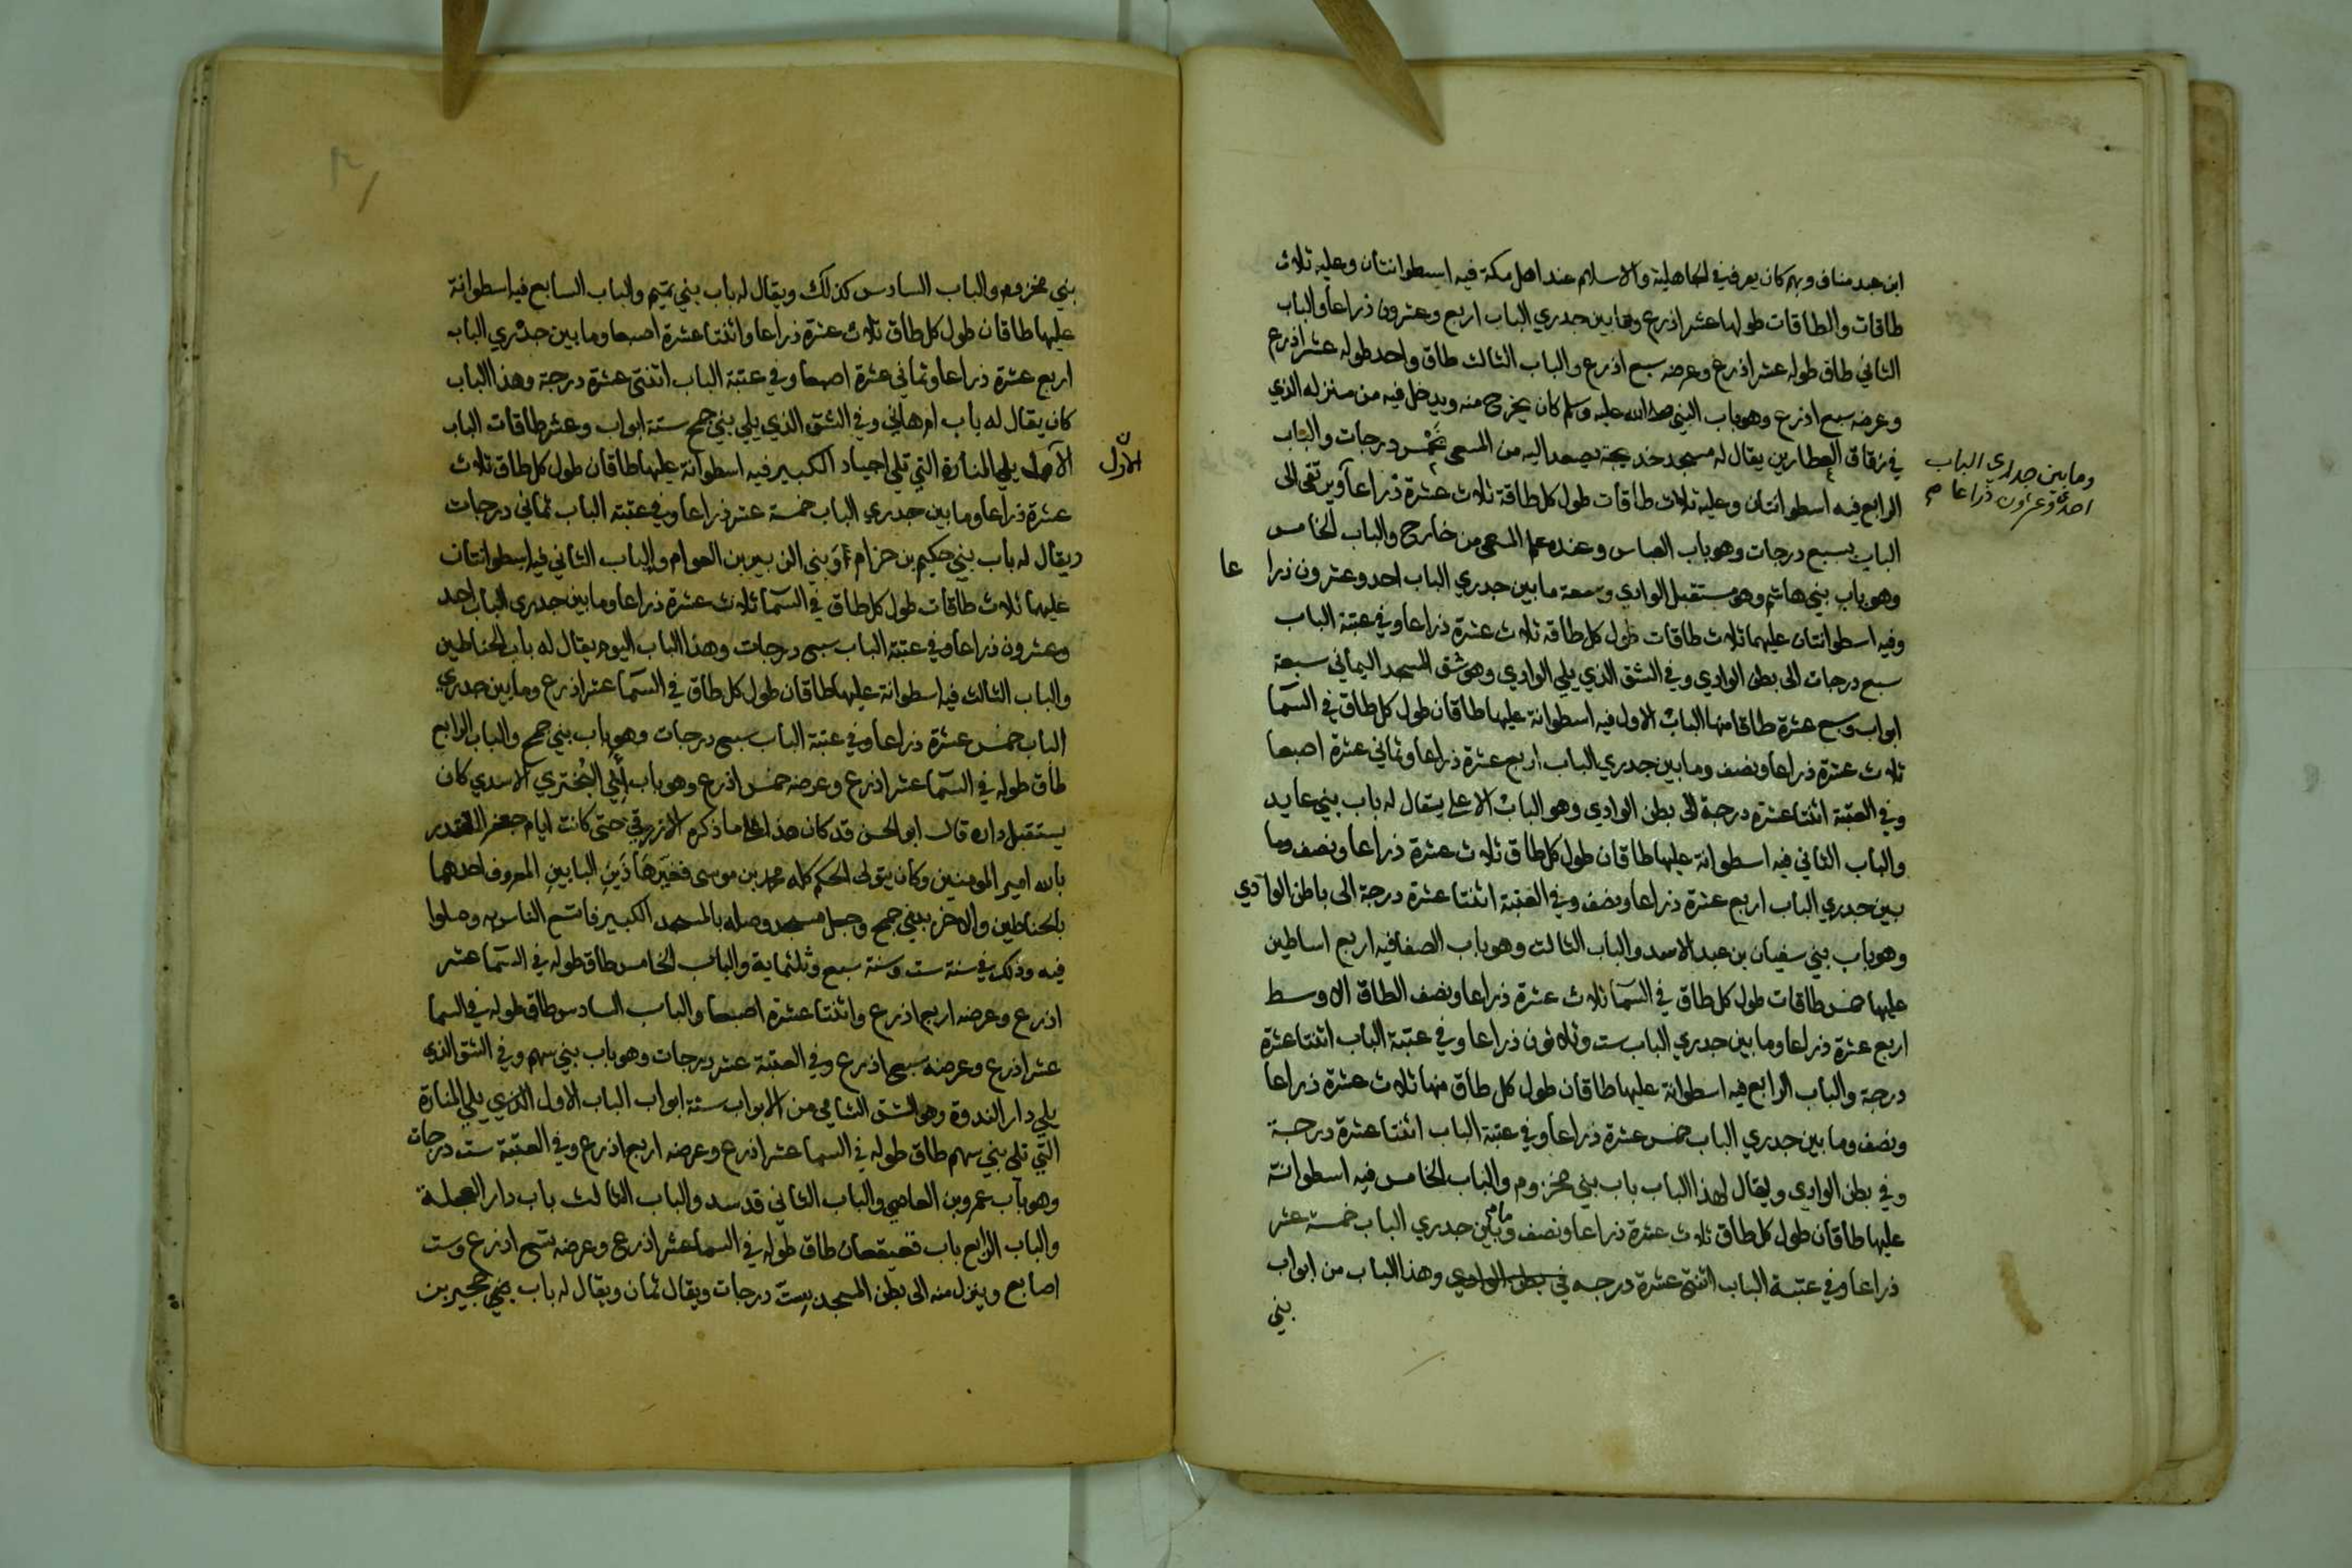 ابن عبد مناف وبهم كان يعرف في الجاهلية والاسلام عند اهل مكة فيه اسطوانتان وعليه ثلاث
طاقات والطاقات طولها عشر اذرع وما بين جدري الباب اربع وعشرون ذراعا والباب
الثاني طاق طوله عشر اذرع وعرضه سبع اذرع والباب الثالث طاق واحد طوله عشر اذرع
وعرضه سبع اذرع وهو باب النبي صلى الله عليه وسلم كان يخرج منه ويدخل فيه من منزله الذي
في زقاق العطارين يقال له مسجد خديجة يصعد اليه من المسعى خمس درجات والباب
وما بين جداري الباب
احدى وعشرون ذراعا صح
الرابع فيه اسطوانتان وعليه ثلاث طاقات طول كل طاقة ثلاث عشرة ذراعا ويرتقى الى
الباب بسبع درجات وهو باب العباس وعنده علم المسعى من خارج والباب الخامس
وهو باب بني هاشم وهو مستقبل الوادي وسعة ما بين جدري الباب احد وعشرون ذراعا
وفيه اسطوانتان عليهما ثلاث طاقات طول كل طاقه ثلاث عشرة ذراعا وفي عتبة الباب
سبع درجات الى بطن الوادي وفي الشق الذي يلي الوادي وهو شق المسجد اليماني سبعة
ابواب وسبع عشرة طاقا منها الباب الاول فيه اسطوانة عليها طاقان طول كل طاق في السما
ثلاث عشرة ذراعا ونصف وما بين جدري الباب اربع عشرة ذراعا وثماني عشرة اصبعا
وفي العتبة اثنتا عشرة درجة الى بطن الوادي وهو الباب الاعلى يقال له باب بني عايد
والباب الثاني فيه اسطوانة عليها طاقان طول كل طاق ثلاث عشرة ذراعا ونصف وما
بين جدري الباب اربع عشرة ذراعا ونصف وفي العتبة اثنتا عشرة درجة الى باطن الوادي
وهو باب بني سفيان بن عبد الاسد والباب الثالث وهو باب الصفا فيه اربع اساطين
عليها خمس طاقات طول كل طاق في السما ثلاث عشرة ذراعا ونصف الطاق الاوسط
اربع عشرة ذراعا وما بين جدري الباب ست وثلاثون ذراعا وفي عتبة الباب اثنتا عشرة
درجة والباب الرابع فيه اسطوانة عليها طاقان طول كل طاق منها ثلاث عشرة ذراعا
ونصف وما بين جدري الباب خمس عشرة ذراعا وفي عتبة الباب اثنتا عشرة درجة
وفي بطن الوادي ويقال لهذا الباب باب بني مخزوم والباب الخامس فيه اسطوانة
عليها طاقان طول كل طاق ثلاث عشرة ذراعا ونصف وما بين جدري الباب خمسة عشر
ذراعا وفي عتبة الباب اثنتى عشرة درجه في بطن الوادي وهذا الباب من ابواب
بني
بني مخزوم والباب السادس كذلك ويقال له باب بني تميم والباب السابع فيه اسطوانة
عليها طاقان طول كل طاق ثلاث عشرة ذراعا واثنتا عشرة اصبعا وما بين جدري الباب
اربع عشرة ذراعا وثماني عشرة اصبعا وفي عتبة الباب اثنتى عشرة درجة وهذا الباب
كان يقال له باب ام هاني وفي الشق الذي يلي بني جمح ستة ابواب وعشر طاقات الباب
الاول
الاول يلي المنارة التي تلي اجياد الكبير فيه اسطوانة عليها طاقان طول كل طاق ثلاث
عشرة ذراعا وما بين جدري الباب خمسة عشر ذراعا وفي عتبة الباب ثماني درجات
ويقال له باب بني حكيم بن حزام وبني الزبير بن العوام والباب الثاني فيه اسطوانتان
عليهما ثلاث طاقات طول كل طاق في السما ثلاث عشرة ذراعا وما بين جدري الباب احد
وعشرون ذراعا وفي عتبة الباب سبع درجات وهذا الباب اليوم يقال له باب الحناطين
والباب الثالث فيه اسطوانة عليها طاقان طول كل طاق في السما عشر اذرع وما بين جدري
الباب خمس عشرة ذراعا وفي عتبة الباب سبع درجات وهو باب بني جمح والباب الرابع
طاق طوله في السما عشر اذرع وعرضه خمس اذرع وهو باب ابي البختري الاسدي كان
يستقبل داره قال ابو الحسن قد كان هذا على ما ذكره الازرقي حتى كانت ايام جعفر المقتدر
بالله امير المومنين وكان يتولى الحكم كله محمد بن موسى فغير هذين البابين المعروف احدهما
بالحناطين والاخر ببني جمح وجعل مسجد وصله بالمسجد الكبير فاتسع الناس به وصلوا
فيه وذلك في سنة ست وسنة سبع وثلثماية والباب الخامس طاق طوله في السما عشر
اذرع وعرضه اربع اذرع واثنتا عشرة اصبعا والباب السادس طاق طوله في السما
عشر اذرع وعرضه سبع اذرع وفي العتبة عشر درجات وهو باب بني سهم وفي الشق الذي
يلي دار الندوة وهو الشق الشامي من الابواب ستة ابواب الباب الاول الذي يلي المنارة
التي تلي بني سهم طاق طوله في السما عشر اذرع وعرضه اربع اذرع وفي العتبة ست درجات
وهو باب عمرو بن العاصي والباب الثاني قد سد والباب الثالث باب دار العجلة
والباب الرابع باب قعيقعان طاق طوله في السما عشر اذرع وعرضه تسع اذرع وست
اصابع وينزل منه الى بطن المسجد بست درجات ويقال ثمان ويقال له باب حجير بن